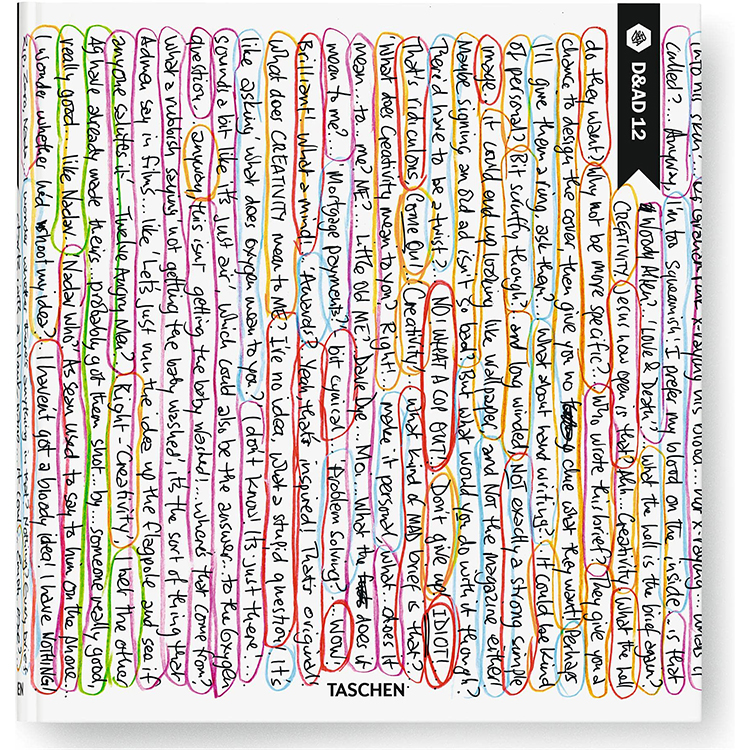 called?... Anyway, I'm too squeamish! I prefer my blood on the inside... is that
Woody Allen? 'Love & Death'? What the hell is the brief again?
CREATIVITY. Jesus how open is that? Ahh... Creativity. What the hell
do they want? Why not be more specific? Who wrote this brief? They give you a
chance to design the cover, then give you no clue what they want! Perhaps
I'll give them a ring, ask them? What about hand writing?... It could be kind
of personal? Bit scruffy though? and long winded. Not exactly a strong simple
image. It could end up looking like wallpaper, and not the magazine either!
Maybe signing an old ad isn't so bad? But what would you do with it though?
There'd have to be a twist? NO, WHAT A COP OUT! Don't give up IDIOT!
That's ridiculous. Come On! Creativity, what kind of MAD brief is that?
'What does Creativity mean to you?' Right!... make it personal. What... does it
mean... to me? ME?... Little old ME... Dave Dye... What the does it
mean to me? Mortgage payments? bit cynical Problem Solving? NOW!
Brilliant! What a mind... 'Awards'? Yeah, that's inspired! That's original!
What does CREATIVITY mean to ME? I've no idea, What a stupid question! It's
like asking 'what does oxygen mean to you'? I don't know! Its just there...
sounds a bit like 'its just air', which could also be the answer... to the Oxygen
question. anyway this isn't getting the baby washed!... where's that come from?
What a rubbish saying 'not getting the baby washed', it's the sort of thing that
Admen say in films... like 'Lets just run the idea up the flagpole and see if
anyone salutes it'... Twelve Angry Men? Right - Creativity! I bet the other
already made theirs.. probably got them shot by... someone really good,
really good... like Nadav. Nadav who? Its Sean used to say to him on the phone
I wonder whether he'd shoot my idea?... I haven't got a bloody idea! I have NOTHING!
D&AD 12
TASCHEN